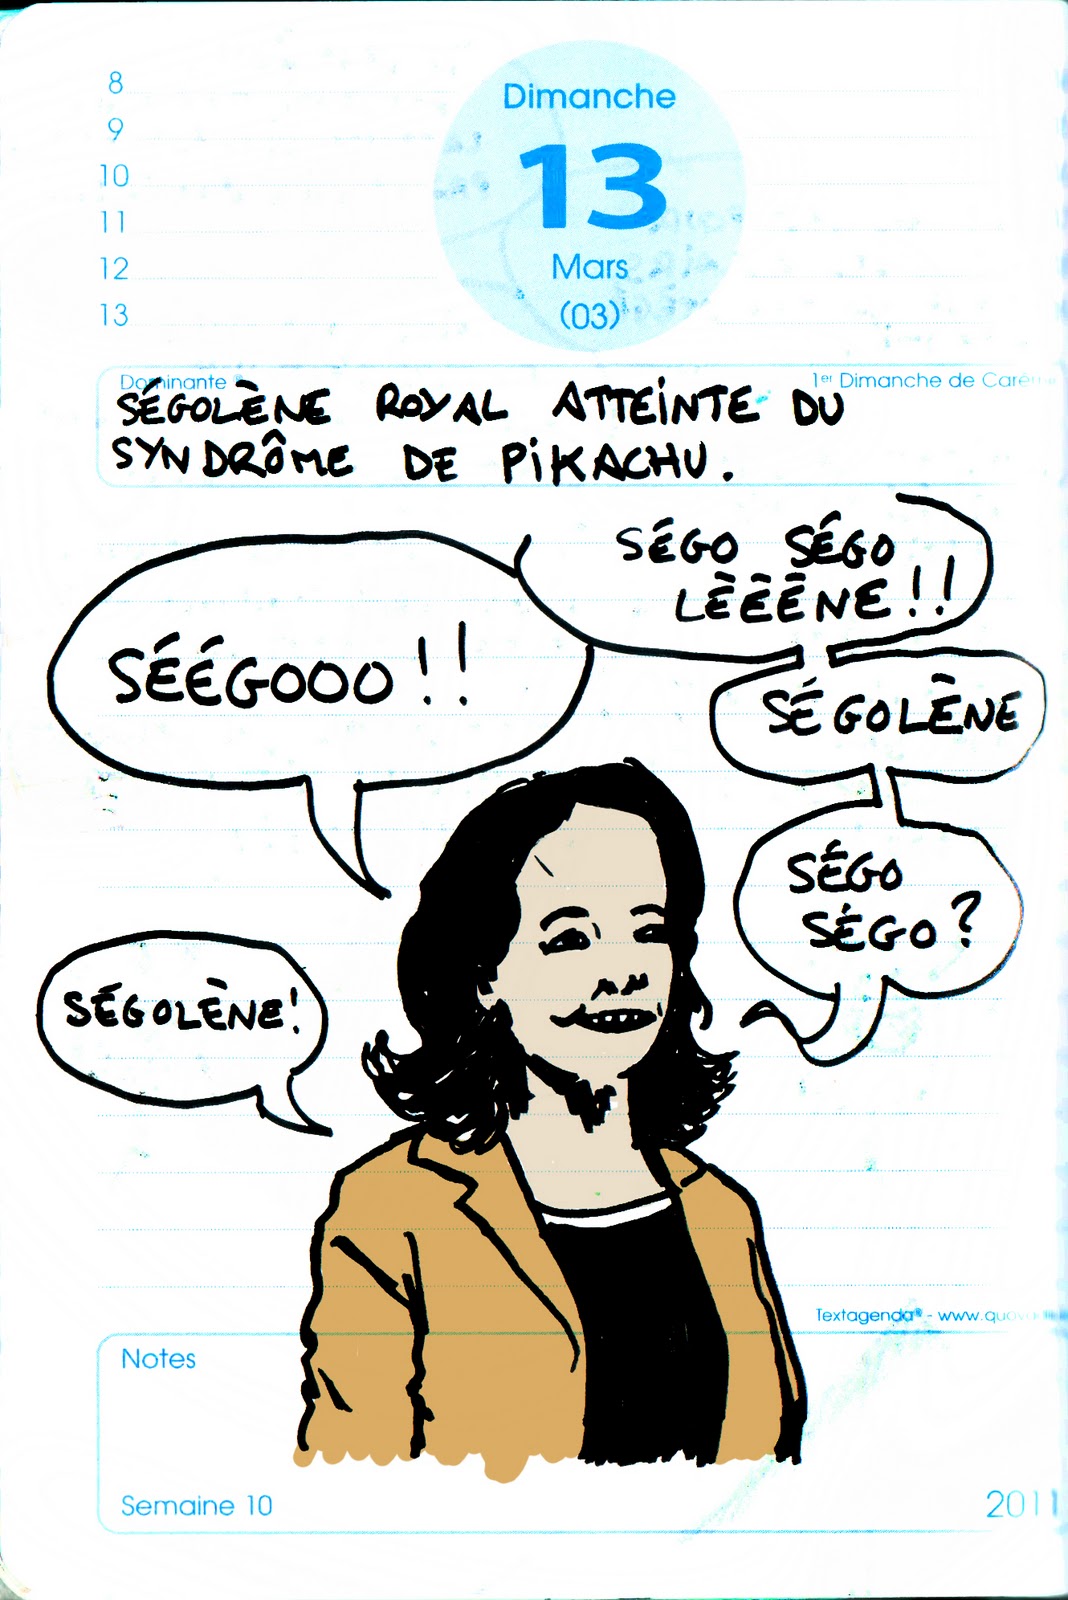 Dimanche
13
Mars
(03)
8
9
10
11
12
13
Dominante
1er Dimanche de Carê
SÉGOLÈNE ROYAL ATTEINTE DU
SYNDRÔME DE PIKACHU.
SÉGO SÉGO
LÈÈÈNE!!
SÉÉGOOO!!
SÉGOLÈNE
SÉGO
SÉGO?
SÉGOLÈNE!
Textagenda® - www.quov
Notes
Semaine 10
2011